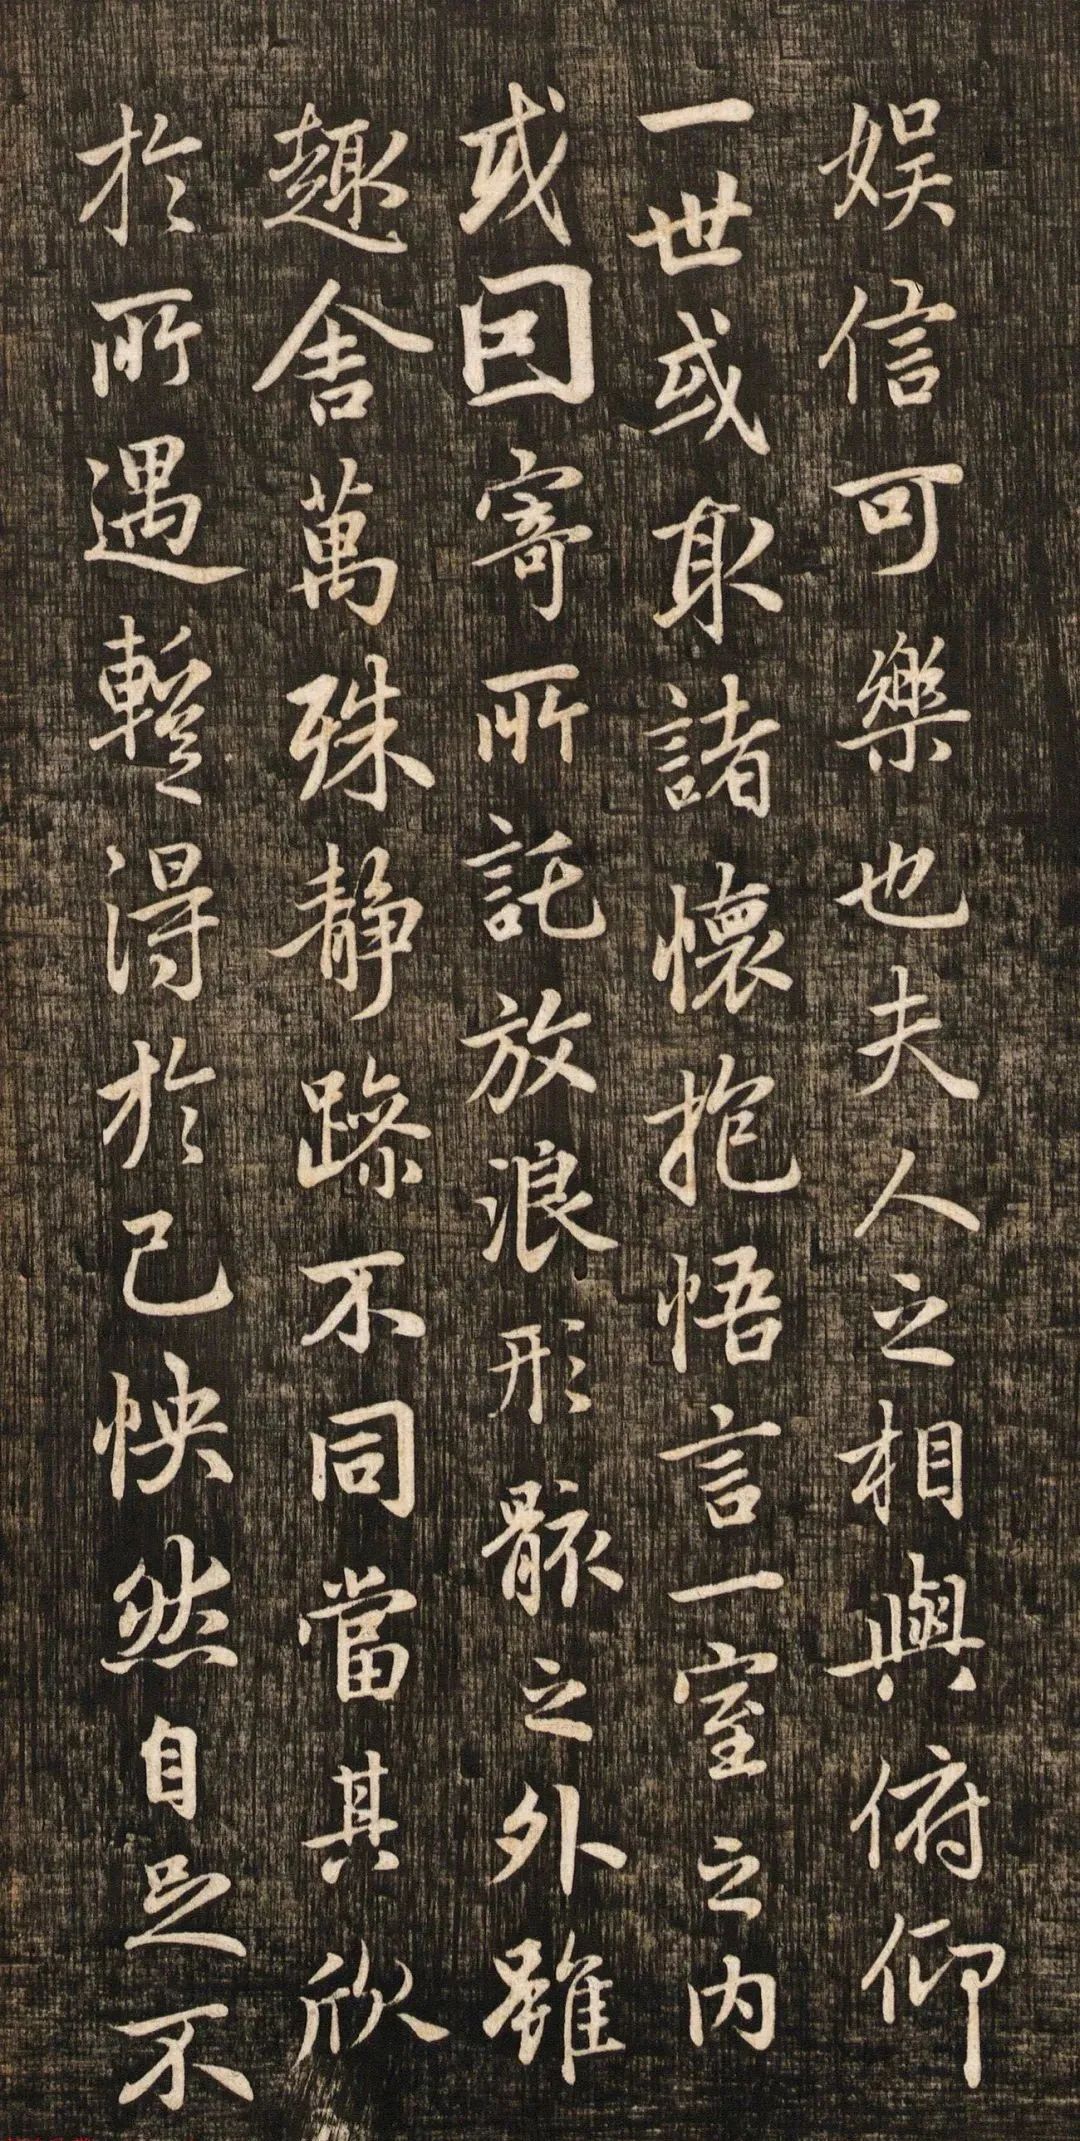 娱信可樂也夫人之相與俯仰
一世或取諸懷抱悟言一室之内
或因寄所託放浪形骸之外雖
趣舍萬殊靜躁不同當其欣
於所遇暫得於己怏然自足不